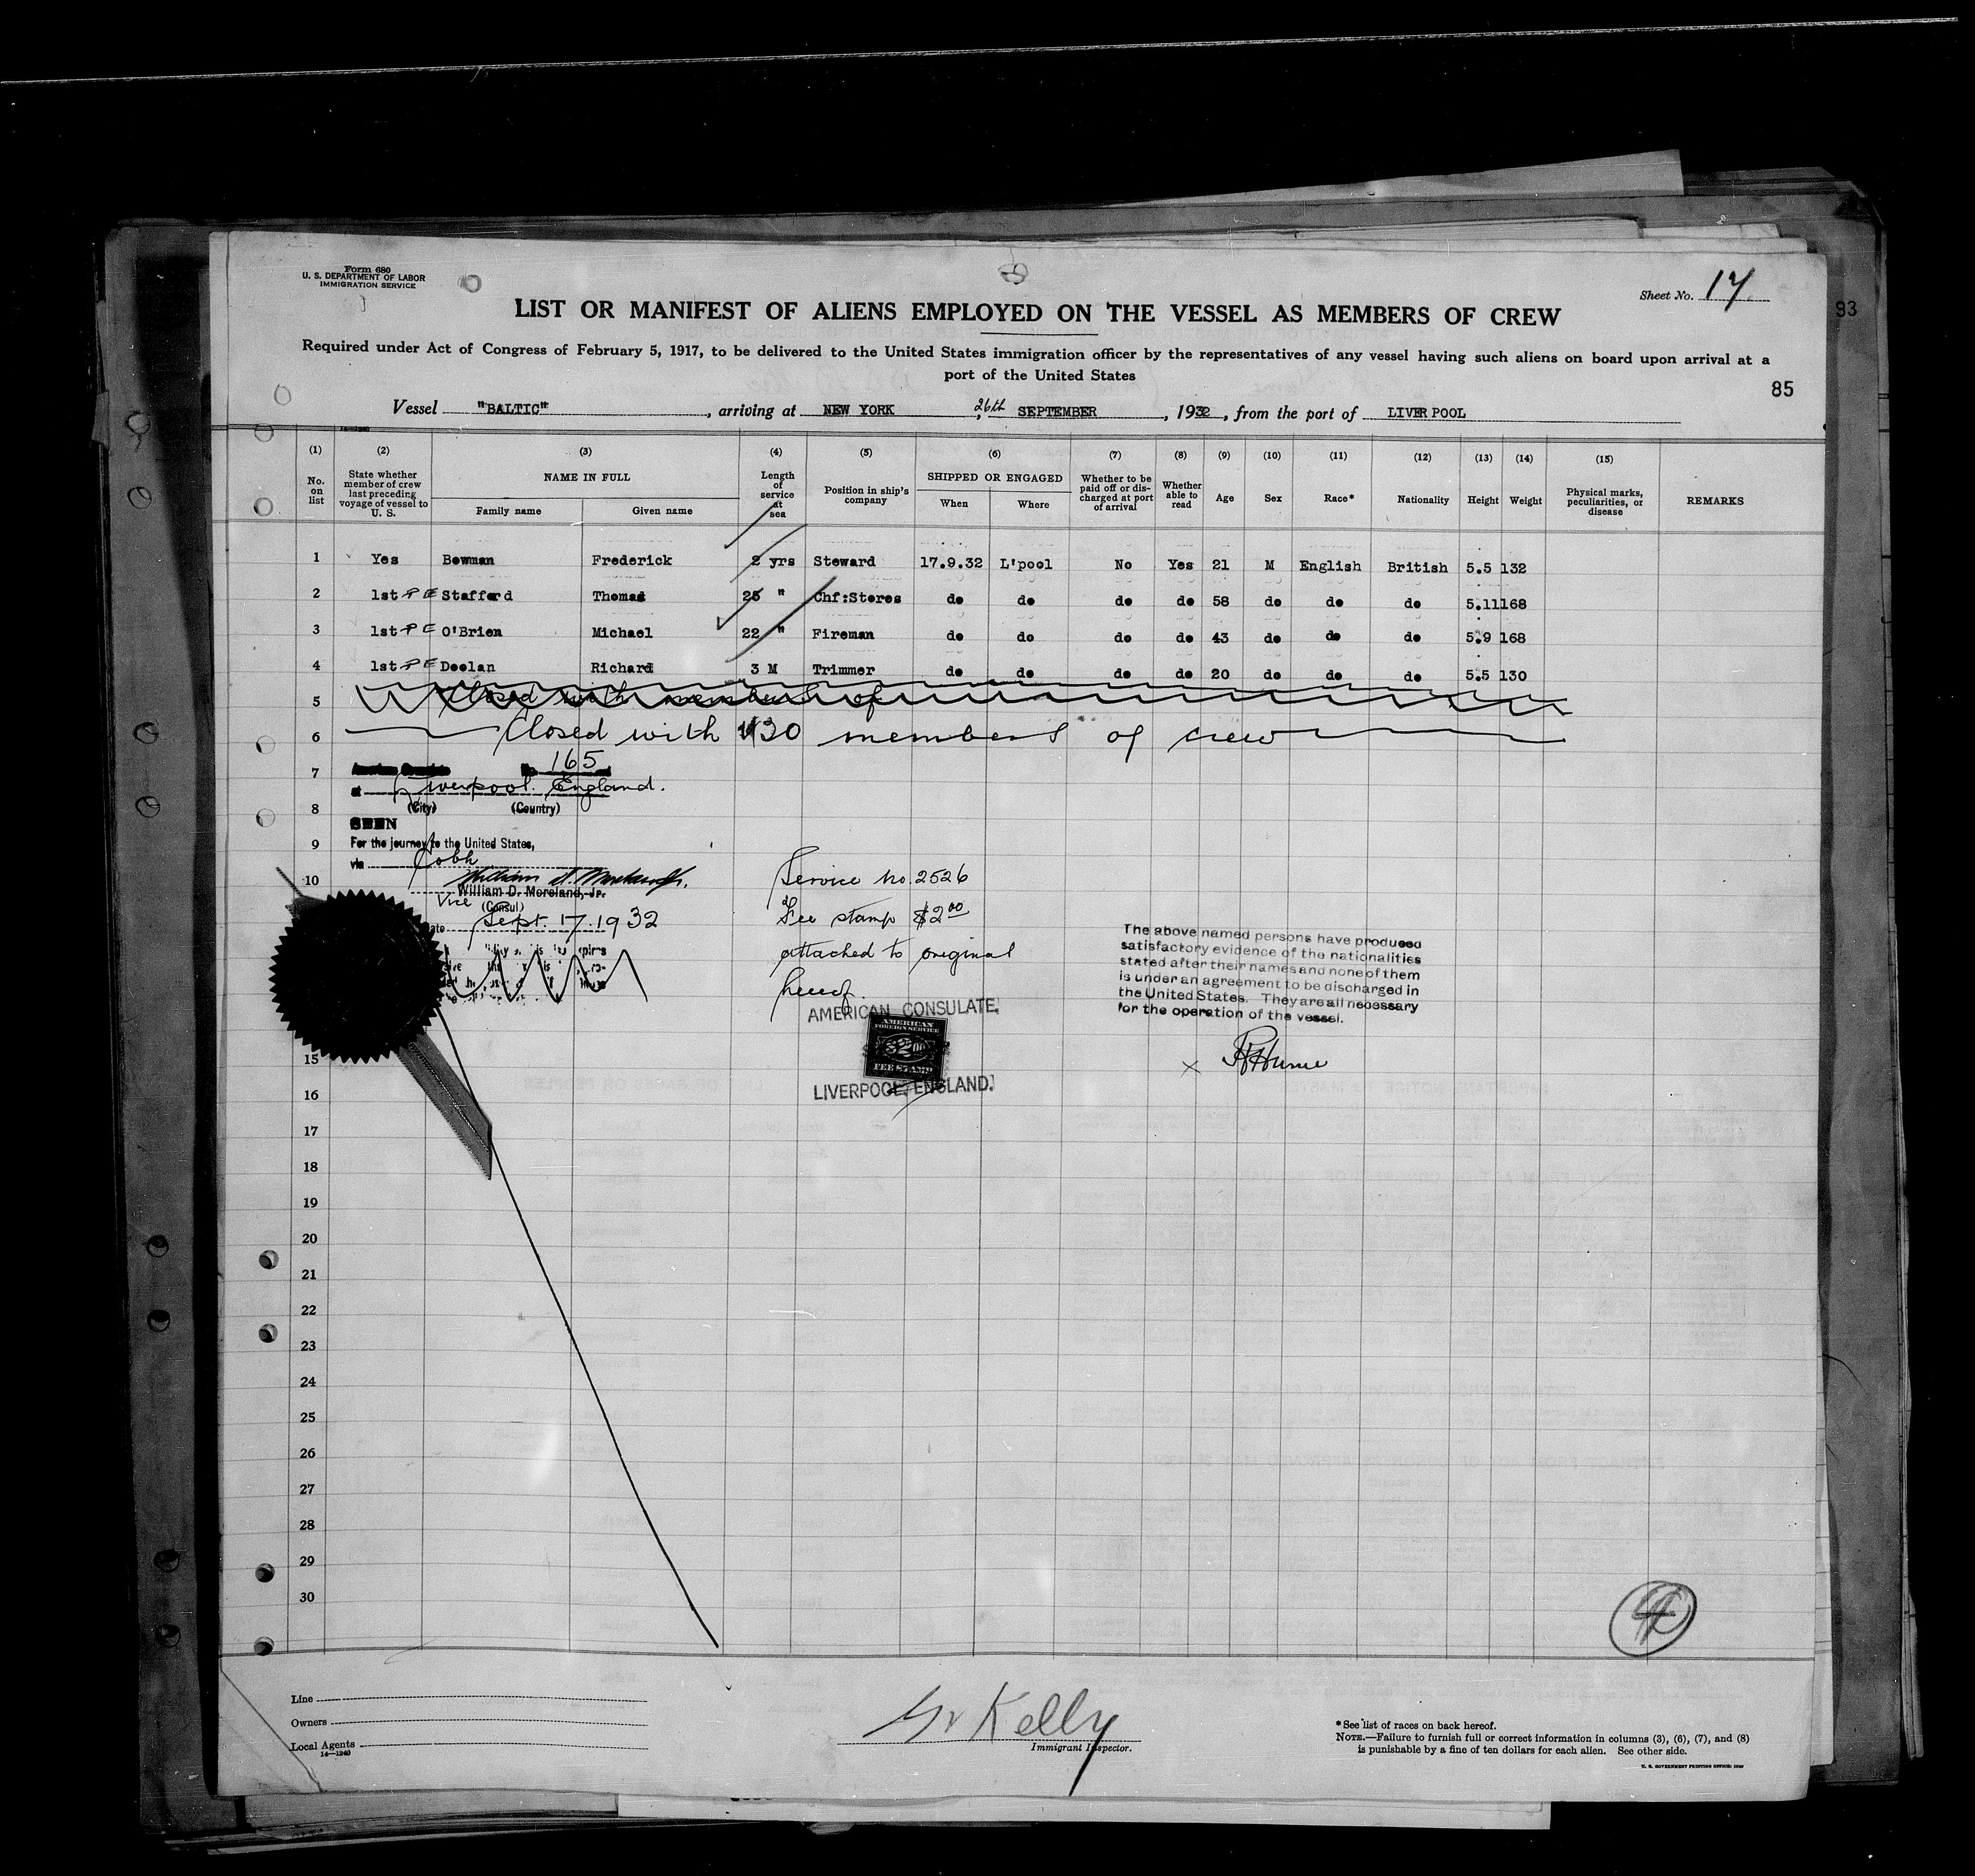 Form 680
U. S. DEPARTMENT OF LABOR
IMMIGRATION SERVICE
Sheet No. 17
93
LIST OR MANIFEST OF ALIENS EMPLOYED ON THE VESSEL AS MEMBERS OF CREW
Required under Act of Congress of February 5, 1917, to be delivered to the United States immigration officer by the representatives of any vessel having such aliens on board upon arrival at a
port of the United States
85
Vessel "BALTIC", arriving at NEW YORK 26th SEPTEMBER, 1932, from the port of LIVERPOOL
(1) (2) (3) (4) (5) (6) (7) (8) (9) (10) (11) (12) (13) (14) (15)
No. on list
State whether member of crew last preceding voyage of vessel to U. S.
NAME IN FULL
Family name Given name
Length of service at sea
Position in ship's company
SHIPPED OR ENGAGED
When Where
Whether to be paid off or discharged at port of arrival
Whether able to read
Age Sex Race* Nationality Height Weight
Physical marks, peculiarities, or disease
REMARKS
1 Yes Bowman Frederick 2 yrs Steward 17.9.32 L'pool No Yes 21 M English British 5.5 132
2 1st PE Stafford Thomas 25 " Chf:Stores do do do do 58 do do do 5.11 168
3 1st PE O'Brien Michael 22 " Fireman do do do do 43 do do do 5.9 168
4 1st PE Doolan Richard 3 M Trimmer do do do do 20 do do do 5.5 130
5 Closed with members of
6 Closed with 130 members of crew
7 165
at Liverpool. England.
8 (City) (Country)
SEEN
9 For the journey to the United States,
via Cobh
10 William D. Moreland, Jr.
Vice (Consul)
Date Sept. 17. 1932
Service No. 2526
Fee stamp $2.00
attached to original
hereof.
AMERICAN CONSULATE
AMERICAN
FOREIGN SERVICE
$2.00
FEE STAMP
LIVERPOOL, ENGLAND.
The above named persons have produced
satisfactory evidence of the nationalities
stated after their names and none of them
is under an agreement to be discharged in
the United States. They are all necessary
for the operation of the vessel.
x
15
16
17
18
19
20
21
22
23
24
25
26
27
28
29
30
Line
Owners
Local Agents
14—1240
Kelly
Immigrant Inspector.
*See list of races on back hereof.
NOTE.—Failure to furnish full or correct information in columns (3), (6), (7), and (8)
is punishable by a fine of ten dollars for each alien. See other side.